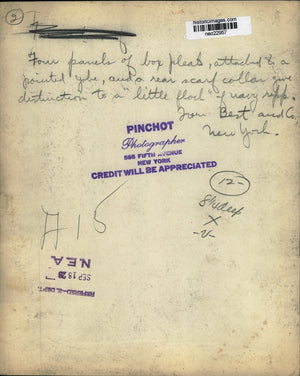 2
historicimages.com
neo22957
Four panels of box pleats, attached to a
pointed yoke, and a rear scarf collar give
distinction to a "little flock" of navy repp.
From Best and Co,
New York.
PINCHOT
Photographer
595 FIFTH AVENUE
NEW YORK
CREDIT WILL BE APPRECIATED
12-
X
-V-
A 15
SEP 18 29
N.E.A.
REFERRED-E. DEPT.